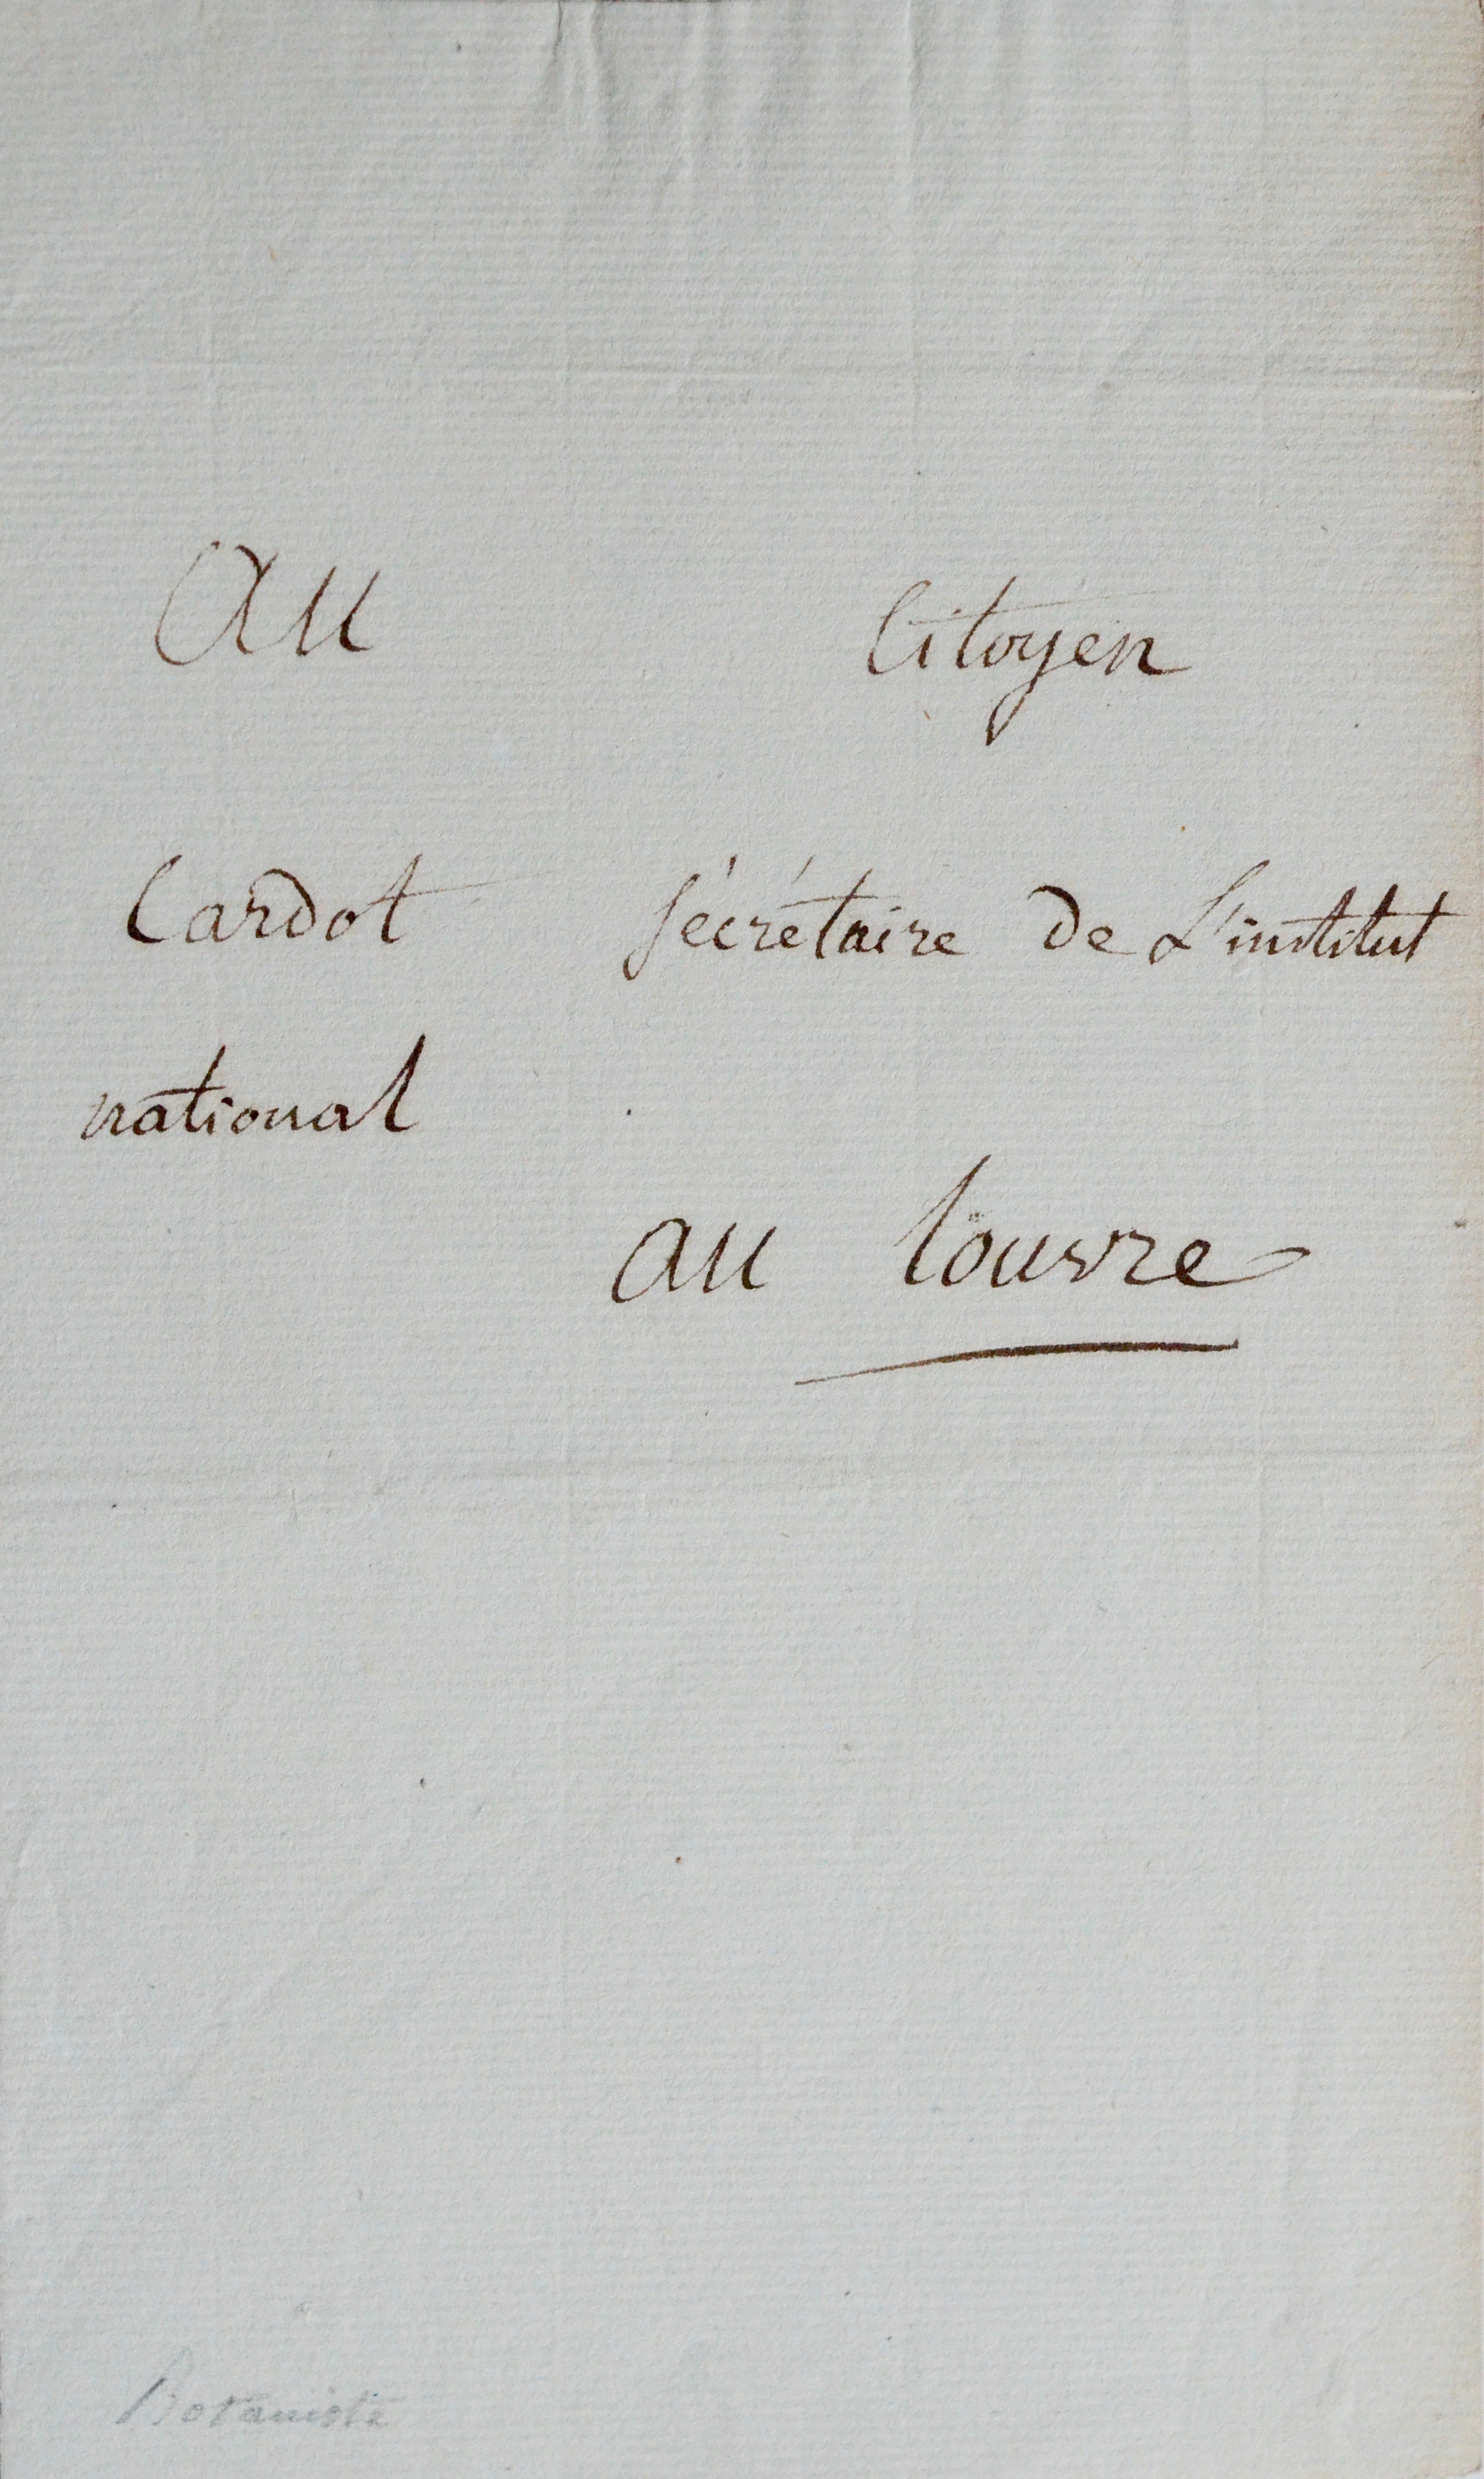 Au Citoyen
Cardot sécrétaire de L'institut
national
au louvre
Botaniste